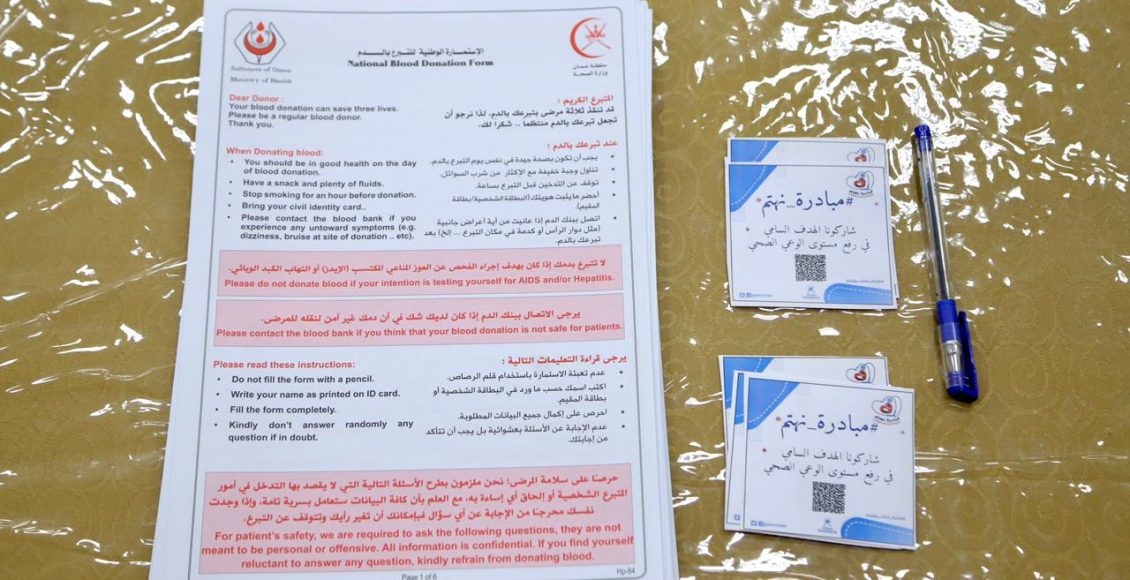 Sultanate of Oman
Ministry of Health
الإستمارة الوطنية للتبرع بالدم
National Blood Donation Form
سلطنة عمان
وزارة الصحة
Dear Donor :
Your blood donation can save three lives.
Please be a regular blood donor.
Thank you.
المتبرع الكريم :
قد تنقذ ثلاثة مرضى بتبرعك بالدم، لذا نرجو أن
تجعل تبرعك بالدم منتظما .. شكرا لك.
When Donating blood:
• You should be in good health on the day
of blood donation.
• Have a snack and plenty of fluids.
• Stop smoking for an hour before donation.
• Bring your civil identity card..
• Please contact the blood bank if you
experience any untoward symptoms (e.g.
dizziness, bruise at site of donation .. etc).
عند تبرعك بالدم :
• يجب أن تكون بصحة جيدة في نفس يوم التبرع بالدم.
• تناول وجبة خفيفة مع الإكثار من شرب السوائل.
• توقف عن التدخين قبل التبرع بساعة.
• أحضر ما يثبت هويتك (البطاقة الشخصية/بطاقة
المقيم).
• اتصل ببنك الدم إذا عانيت من أية أعراض جانبية
(مثل دوار الرأس أو كدمة في مكان التبرع ... إلخ) بعد
تبرعك بالدم.
لا تتبرع بدمك إذا كان بهدف إجراء الفحص عن العوز المناعي المكتسب (الإيدز) أو التهاب الكبد الوبائي.
Please do not donate blood if your intention is testing yourself for AIDS and/or Hepatitis.
يرجى الاتصال ببنك الدم إذا كان لديك شك في أن دمك غير آمن لنقله للمرضى.
Please contact the blood bank if you think that your blood donation is not safe for patients.
Please read these instructions:
• Do not fill the form with a pencil.
• Write your name as printed on ID card.
• Fill the form completely.
• Kindly don't answer randomly any
question if in doubt.
يرجى قراءة التعليمات التالية :
• عدم تعبئة الاستمارة باستخدام قلم الرصاص.
• اكتب اسمك حسب ما ورد في البطاقة الشخصية أو
بطاقة المقيم.
• احرص على إكمال جميع البيانات المطلوبة.
• عدم الإجابة عن الأسئلة بعشوائية بل يجب أن تتأكد
من إجابتك.
حرصا على سلامة المرضى؛ نحن ملزمون بطرح الأسئلة التالية التي لا يقصد بها التدخل في أمور
المتبرع الشخصية أو إلحاق أي إساءة به، مع العلم بأن كافة البيانات ستعامل بسرية تامة، وإذا وجدت
نفسك محرجا من الإجابة عن أي سؤال فبإمكانك أن تغير رأيك وتتوقف عن التبرع.
For patient's safety, we are required to ask the following questions, they are not
meant to be personal or offensive. All information is confidential. If you find yourself
reluctant to answer any question, kindly refrain from donating blood.
Page 1 of 6
Hp-84
#مبادرة_نهتم
شاركونا الهدف السامي
في رفع مستوى الوعي الصحي
#مبادرة_نهتم
شاركونا الهدف السامي
في رفع مستوى الوعي الصحي